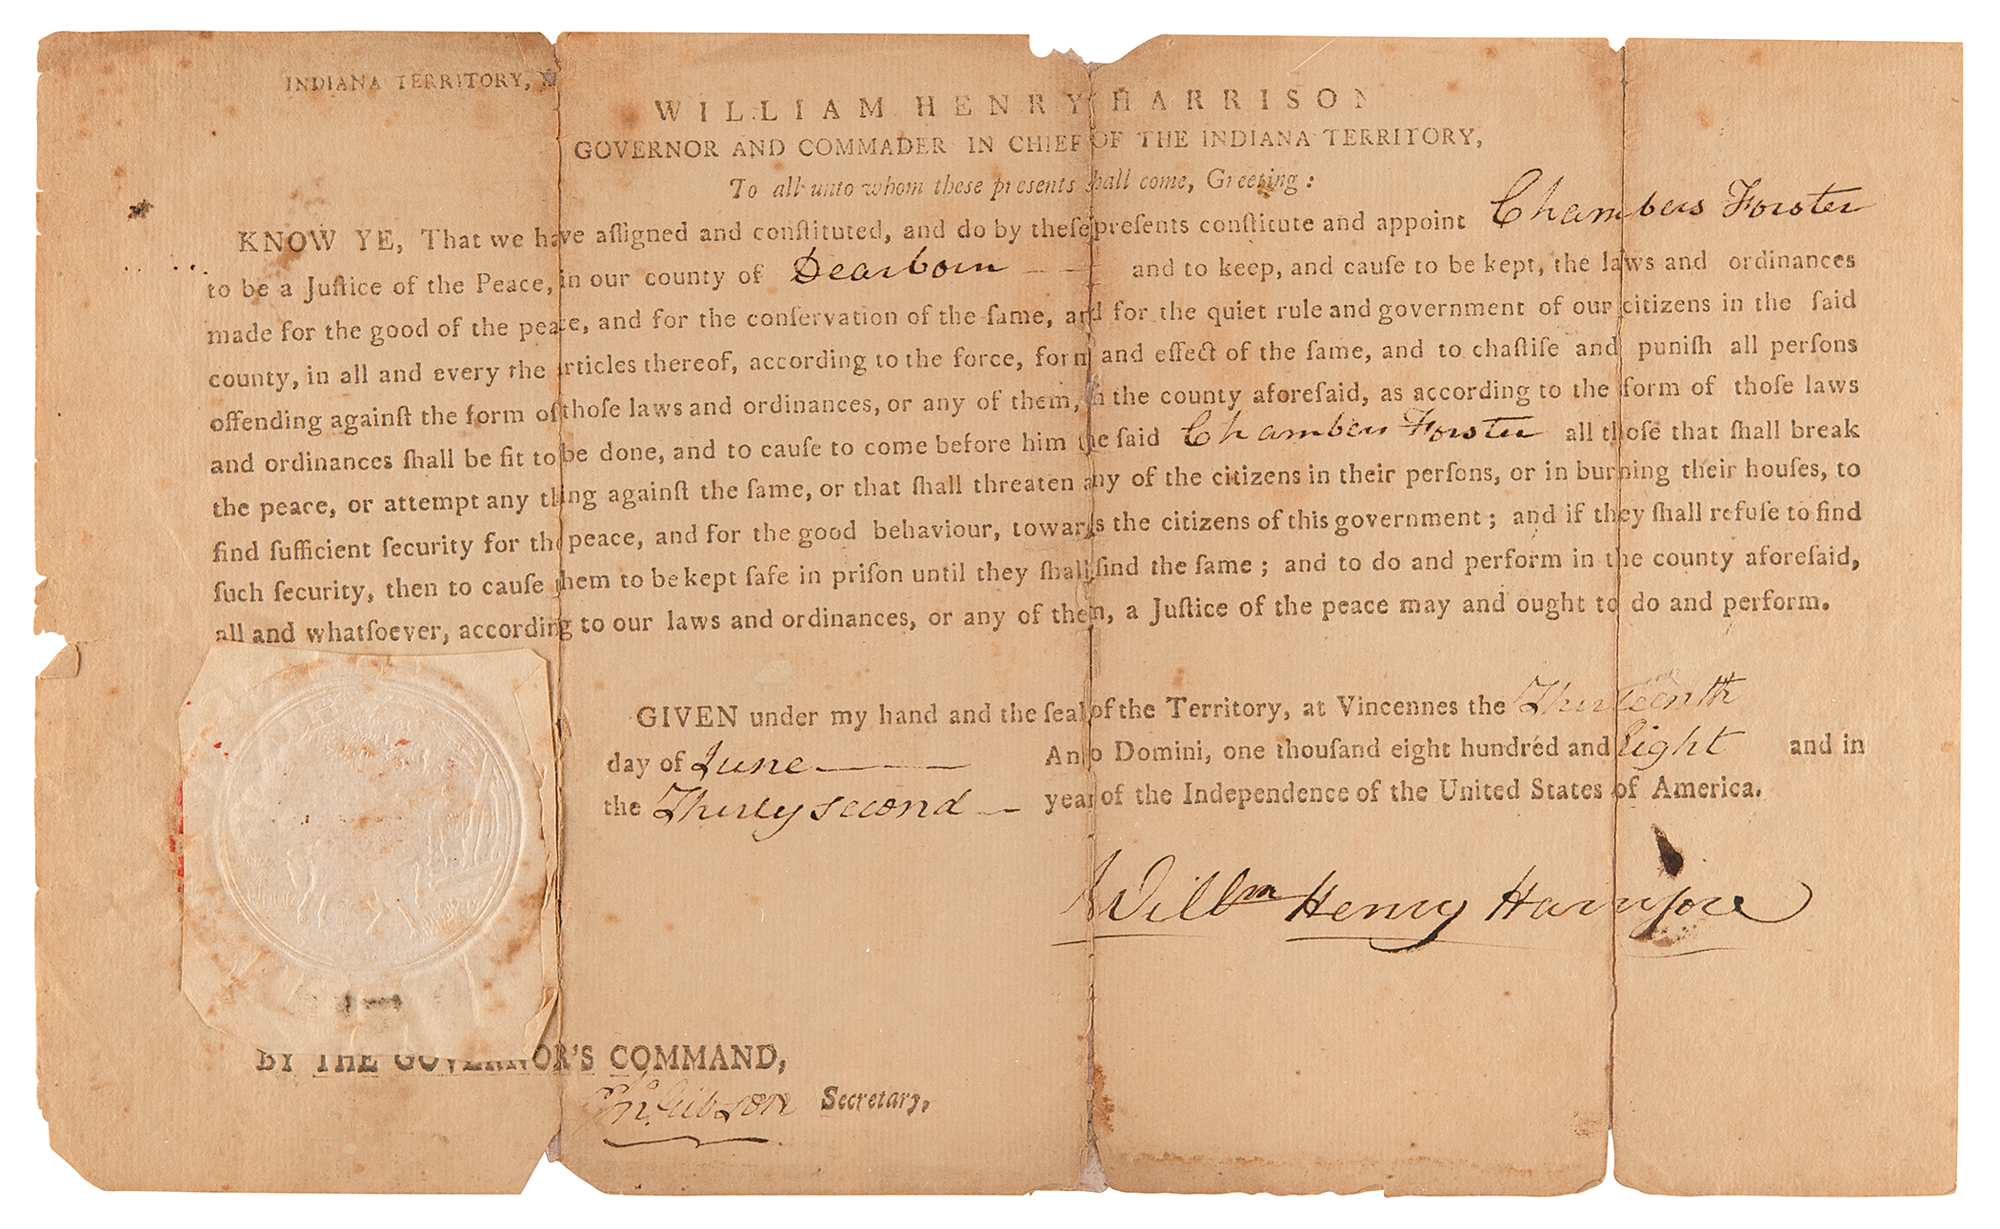 INDIANA TERRITORY,
WILLIAM HENRY HARRISON
GOVERNOR AND COMMADER IN CHIEF OF THE INDIANA TERRITORY,
To all unto whom these presents shall come, Greeting:
KNOW YE, That we have aſſigned and conſtituted, and do by theſe preſents conſtitute and appoint Chambers Forster
to be a Juſtice of the Peace, in our county of Dearborn — and to keep, and cauſe to be kept, the laws and ordinances
made for the good of the peace, and for the conſervation of the ſame, and for the quiet rule and government of our citizens in the ſaid
county, in all and every the articles thereof, according to the force, form and effect of the ſame, and to chaſtiſe and puniſh all perſons
offending againſt the form of thoſe laws and ordinances, or any of them, in the county aforeſaid, as according to the form of thoſe laws
and ordinances ſhall be fit to be done, and to cauſe to come before him the ſaid Chambers Forster all thoſe that ſhall break
the peace, or attempt any thing againſt the ſame, or that ſhall threaten any of the citizens in their perſons, or in burning their houſes, to
find ſufficient ſecurity for the peace, and for the good behaviour, towards the citizens of this government; and if they ſhall refuſe to find
ſuch ſecurity, then to cauſe them to be kept ſafe in priſon until they ſhall find the ſame; and to do and perform in the county aforeſaid,
all and whatſoever, according to our laws and ordinances, or any of them, a Juſtice of the peace may and ought to do and perform.
GIVEN under my hand and the ſeal of the Territory, at Vincennes the Thirteenth
day of June — Anno Domini, one thouſand eight hundred and Eight and in
the Thirty second — year of the Independence of the United States of America.
Willm Henry Harriſon
BY THE GOVERNOR'S COMMAND,
Jno. Gibson Secretary,